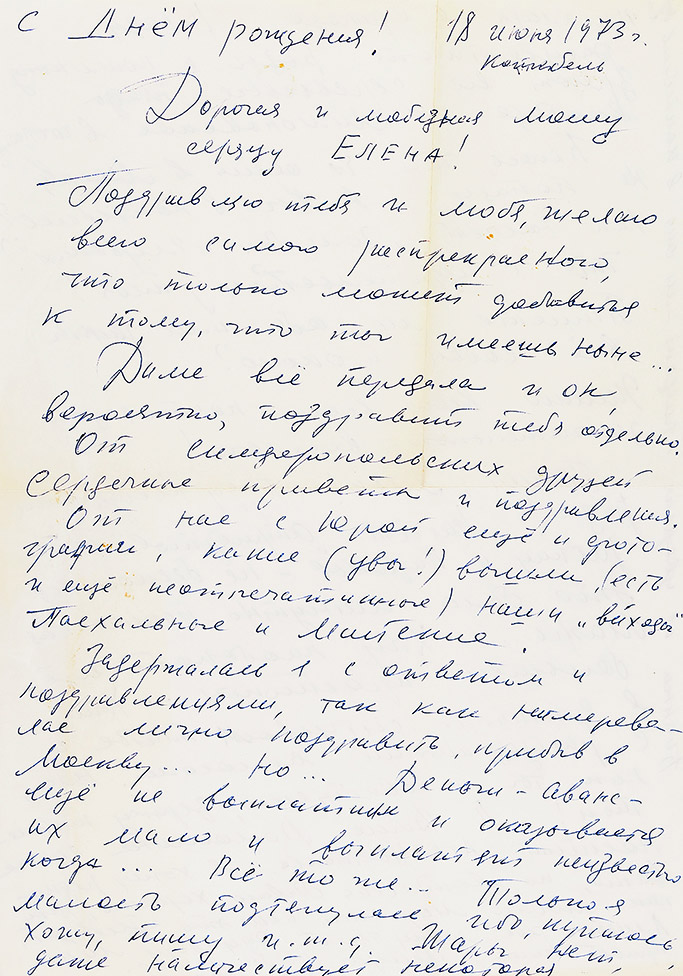 С Днём рождения! 18 июня 1973 г.
Коктебель
Дорогая и любезная моему
сердцу ЕЛЕНА!
Поздравляю тебя и любя, желаю
всего самого распрекрасного,
что только может добавиться
к тому, что ты имеешь ныне...
Диме всё передала и он,
вероятно, поздравит тебя отдельно.
От симферопольских друзей
сердечные приветы и поздравления.
От нас с Юрой ещё и фото-
графии, какие (увы!) вышли (есть
и ещё неотпечатанные) наши „выходы"
Пасхальные и
Задержалась я с ответом и
поздравлениями, так как намерева-
лась лично поздравить, прибыв в
Москву... но... Деньги - аванс -
ещё не выплатили и оказывается
их мало и выплатят неизвестно
когда... Всё то же... Только я
малость подтянулась ибо,
хожу, пишу и.т.д. Жары нет,
даже наличествует некоторая